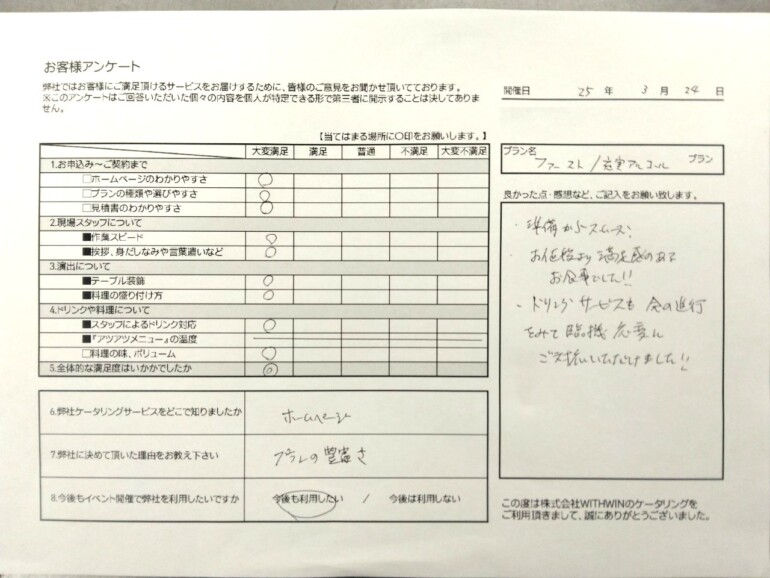 お客様アンケート
弊社ではお客様にご満足頂けるサービスをお届けするために、皆様のご意見をお聞かせ頂いております。
※このアンケートはご回答いただいた個々の内容を個人が特定できる形で第三者に開示することは決してありません。
【当てはまる場所に〇印をお願いします。】
大変満足 満足 普通 不満足 大変不満足
1.お申込み～ご契約まで
□ホームページのわかりやすさ ○
□プランの種類や選びやすさ ○
□見積書のわかりやすさ ○
2.現場スタッフについて
■作業スピード ○
■挨拶、身だしなみや言葉遣いなど ○
3.演出について
■テーブル装飾 ○
■料理の盛り付け方 ○
4.ドリンクや料理について
■スタッフによるドリンク対応 ○
■『アツアツメニュー』の温度
□料理の味、ボリューム ○
5.全体的な満足度はいかがでしたか ◎
6.弊社ケータリングサービスをどこで知りましたか ホームページ
7.弊社に決めて頂いた理由をお教え下さい プランの豊富さ
8.今後もイベント開催で弊社を利用したいですか 今後も利用したい / 今後は利用しない
開催日 25 年 3 月 24 日
プラン名
ファースト/充実アルコール プラン
良かった点・感想など、ご記入をお願い致します。
・準備がスムーズ!
・お値段より満足感のある
お食事でした!!
・ドリンクサービスも会の進行
をみて臨機応変に
ご対応いただけました!!
この度は株式会社WITHWINのケータリングを
ご利用頂きまして、誠にありがとうございました。